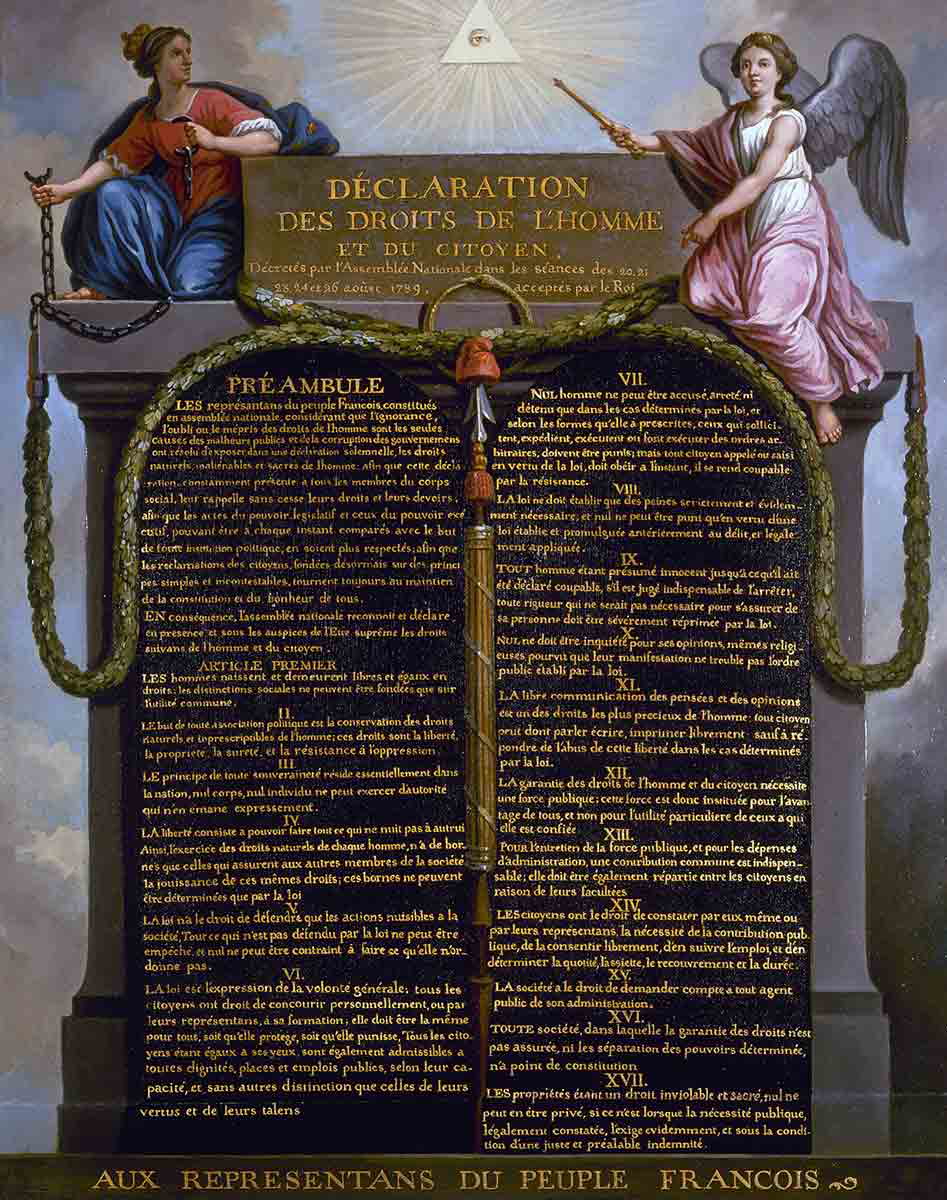 DÉCLARATION
DES DROITS DE L'HOMME
ET DU CITOYEN,
Décretés par l'Assemblée Nationale dans les séances des 20, 21
23, 24 et 26 aoûst 1789, acceptés par le Roi
PRÉAMBULE
LES représantans du peuple Francois, constitués
en assemblée nationale, considérant que l'ignorance,
l'oubli ou le mépris des droits de l'homme sont les seules
causes des malheurs publics et de la corruption des gouvernemens
ont résolu d'exposer dans une déclaration solemnelle, les droits
naturels, inaliénables et sacrés de l'homme; afin que cette décla
ration, constamment présente a tous les membres du corps
social, leur rappelle sans cesse leurs droits et leurs devoirs,
afin que les actes du pouvoir législatif et ceux du pouvoir exé
cutif, pouvant être à chaque instant comparés avec le but
de toute institution politique, en soient plus respectés; afin que
les reclamations des citoyens, fondées désormais sur des princi
pes simples et incontestables, tournent toujours au maintien
de la constitution et du bonheur de tous.
EN conséquence, l'assemblée nationale reconnoit et déclare
en presence et sous les auspices de l'Etre suprême les droits
suivans de l'homme et du citoyen.
ARTICLE PREMIER
LES hommes naissent et demeurent libres et égaux en
droits; les distinctions sociales ne peuvent être fondées que sur
l'utilité commune.
II.
LE but de toute association politique est la conservation des droits
naturels et inprescripibles de l'homme; ces droits sont la liberté,
la propriété, la sureté, et la résistance à l'oppression.
III.
LE principe de toute souveraineté réside essentiellement dans
la nation, nul corps, nul individu ne peut exercer d'autorité
qui n'en émane expressement.
IV.
LA liberté consiste a pouvoir faire tout ce qui ne nuit pas à autrui
Ainsi, l'exercice des droits naturels de chaque homme, n'a de bor-
nes que celles qui assurent aux autres membres de la société
la jouissance de ces mêmes droits; ces bornes ne peuvent
être déterminées que par la loi
V.
LA loi n'a le droit de défendre que les actions nuisibles a la
société, Tout ce qui n'est pas défendu par la loi ne peut être
empêché, et nul ne peut être contraint à faire ce qu'elle n'or-
donne pas.
VI.
LA loi est l'expression de la volonté générale; tous les
citoyens ont droit de concourir personnellement, ou par
leurs représentans, à sa formation; elle doit être la même
pour tous, soit qu'elle protege, soit qu'elle punisse, Tous les cito
yens étant égaux a ses yeux, sont également admissibles a
toutes dignités, places et emplois publics, selon leur ca-
pacité, et sans autres distinction que celles de leurs
vertus et de leurs talens
VII.
NUL homme ne peut être accusé, arreté, ni
détenu que dans les cas déterminés par la loi, et
selon les formes qu'elle à prescrites, ceux qui sollici-
tent, expédient, exécutent ou font exécuter des ordres ar-
bitraires, doivent être punis; mais tout citoyen appelé ou saisi
en vertu de la loi, doit obéir a l'instant, il se rend coupable
par la résistance.
VIII.
LA loi ne doit établir que des peines strictement et évidem-
ment nécessaire, et nul ne peut être puni qu'en vertu d'une
loi établie et promulguée antérierement au délit, et légale-
ment appliquée.
IX.
TOUT homme étant présumé innocent jusqu'à ce qu'il ait
été déclaré coupable, s'il est jugé indispensable de l'arrêter,
toute rigueur qui ne serait pas nécessaire pour s'assurer de
sa personne doit être sévèrement réprimée par la loi.
X.
NUL ne doit être inquiété pour ses opinions, mêmes religi-
euses pourvu que leur manifestation ne trouble pas l'ordre
public établi par la loi.
XI.
LA libre communication des pensées et des opinions
est un des droits les plus precieux de l'homme; tout citoyen
peut dont parler écrire, imprimer librement sauf à ré
pondre de l'abus de cette liberté dans les cas déterminés
par la loi.
XII.
LA garantie des droits de l'homme et du citoyen nécessite
une force publique; cette force est donc instituée pour l'avan
tage de tous, et non pour l'utilité particuliere de ceux a qui
elle est confiée
XIII.
POUR l'entretien de la force publique, et pour les dépenses
d'administration, une contribution commune est indispen-
sable; elle doit être également répartie entre les citoyens en
raison de leurs facultées
XIV.
LES citoyens ont le droit de constater par eux même ou
par leurs représentans, la nécessité de la contribution pub-
lique, de la consentir librement, d'en suivre l'emploi, et d'en
déterminer la quotité, l'assiette, le recouvrement et la durée.
XV.
LA société a le droit de demander compte a tout agent
public de son administration.
XVI.
TOUTE société, dans laquelle la garantie des droits n'est
pas assurée, ni les séparation des pouvoirs déterminée,
n'a point de constitution
XVII.
LES propriétés étant un droit inviolable et sacré, nul ne
peut en être privé, si ce n'est lorsque la nécessité publique,
légalement constatée, l'exige evidemment, et sous la condi-
tion d'une juste et préalable indemnité.
AUX REPRESENTANS DU PEUPLE FRANCOIS